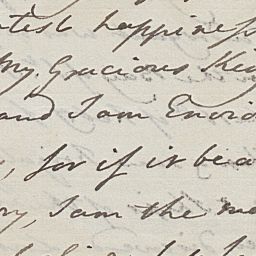 test happiness
my Gracious King
and I am Envio
, for if it be a
ry, I am the mo